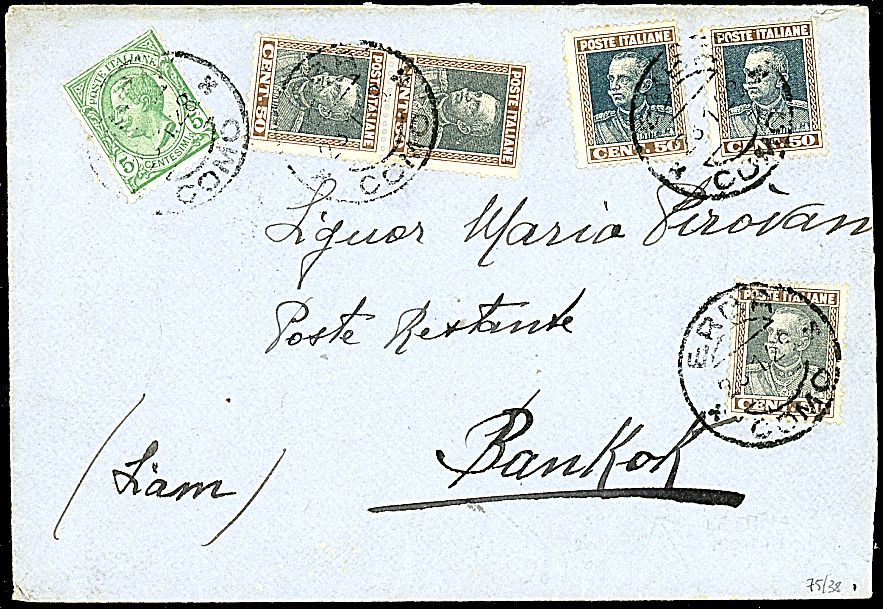 POSTE ITALIANE
15
CENTESIMI
15
COMO
CENT. 50
POSTE ITALIANE
POSTE ITALIANE
COMO
POSTE ITALIANE
CENT. 50
POSTE ITALIANE
CENT. 50
COMO
Signor Maria Pirovan
Poste Restante
POSTE ITALIANE
CENT.
COMO
Bankok
(Siam)
75/38